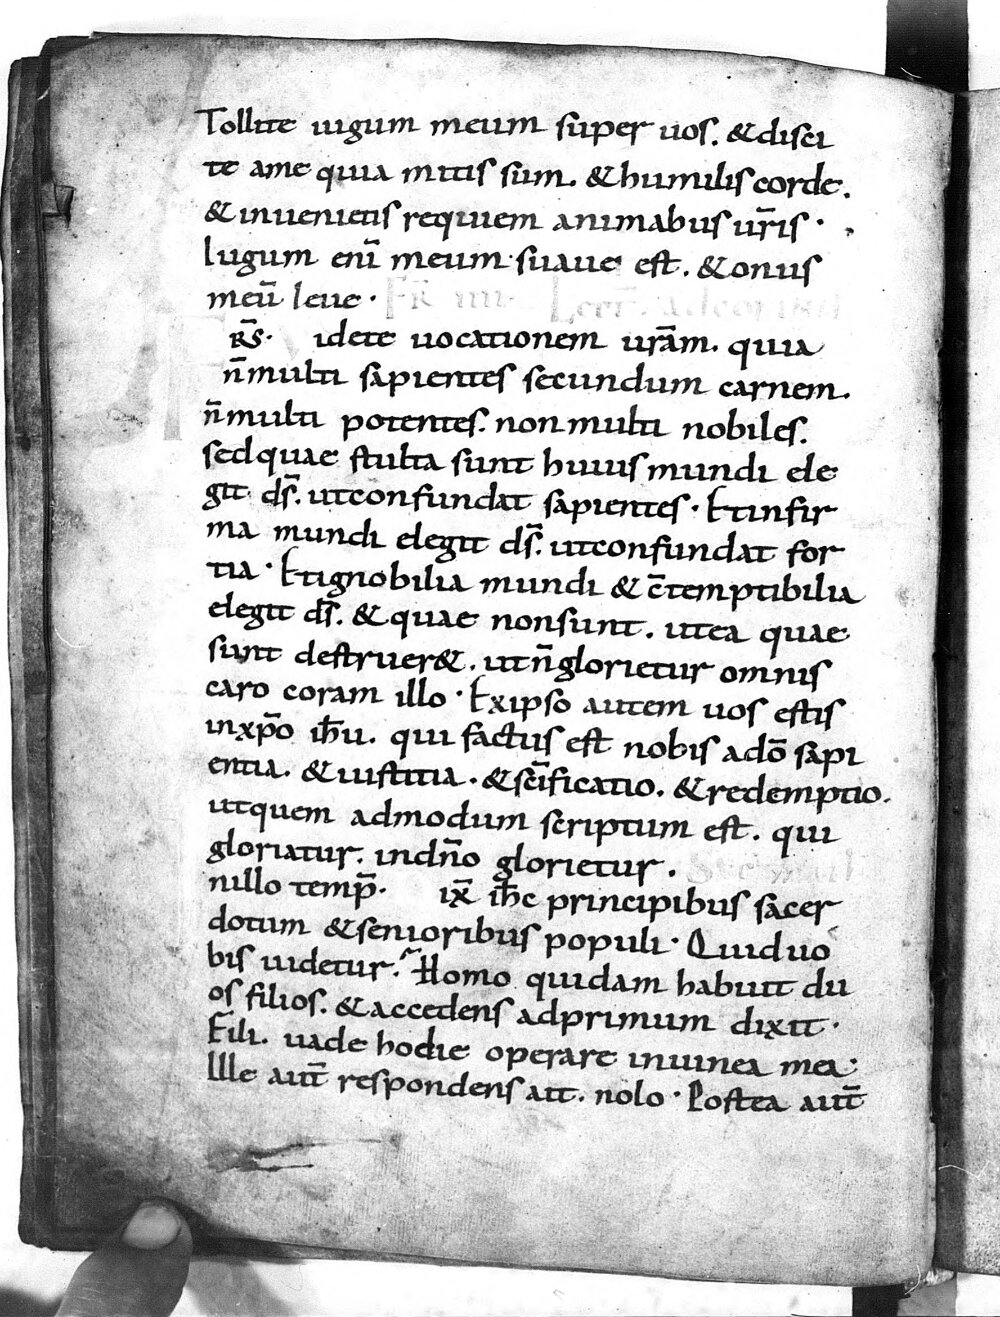 Tollite iugum meum super uos. &disci
te ame quia mitis sum. &humilis corde.
&inuenietis requiem animabus ur̄is·
Iugum enī meum·suaue est. &onus
meū leue· Fr̄ iiii. Lect̄ ad cor
R̄S· idete uocationem urām. quia
n̄multi sapientes secundum carnem.
n̄multi potentes. non multi nobiles.
sed quae stulta sunt huius mundi ele
git d̄s. utconfundat sapientes· Etinfir
ma mundi elegit d̄s. utconfundat for
tia· Etignobilia mundi & c̄temptibilia
elegit d̄s. & quae nonsunt. utea quae
sunt destruer&. utn̄glorietur omnis
caro coram illo· Exipso autem uos estis
inxp̄o ih̄u. qui factus est nobis adō sapi
entia. &iustitia. &sc̄ificatio. &redemptio.
utquem admodum scriptum est. qui
gloriatur. indn̄o glorietur.
nillo temp̄. ix̄ ih̄c principibus sacer
dotum &senioribus populi· Quid uo
bis uidetur. Homo quidam habuit du
os filios. &accedens adprimum dixit·
Fili. uade hodie operare inuinea mea·
Ille aut̄ respondens ait. nolo· Postea aut̄